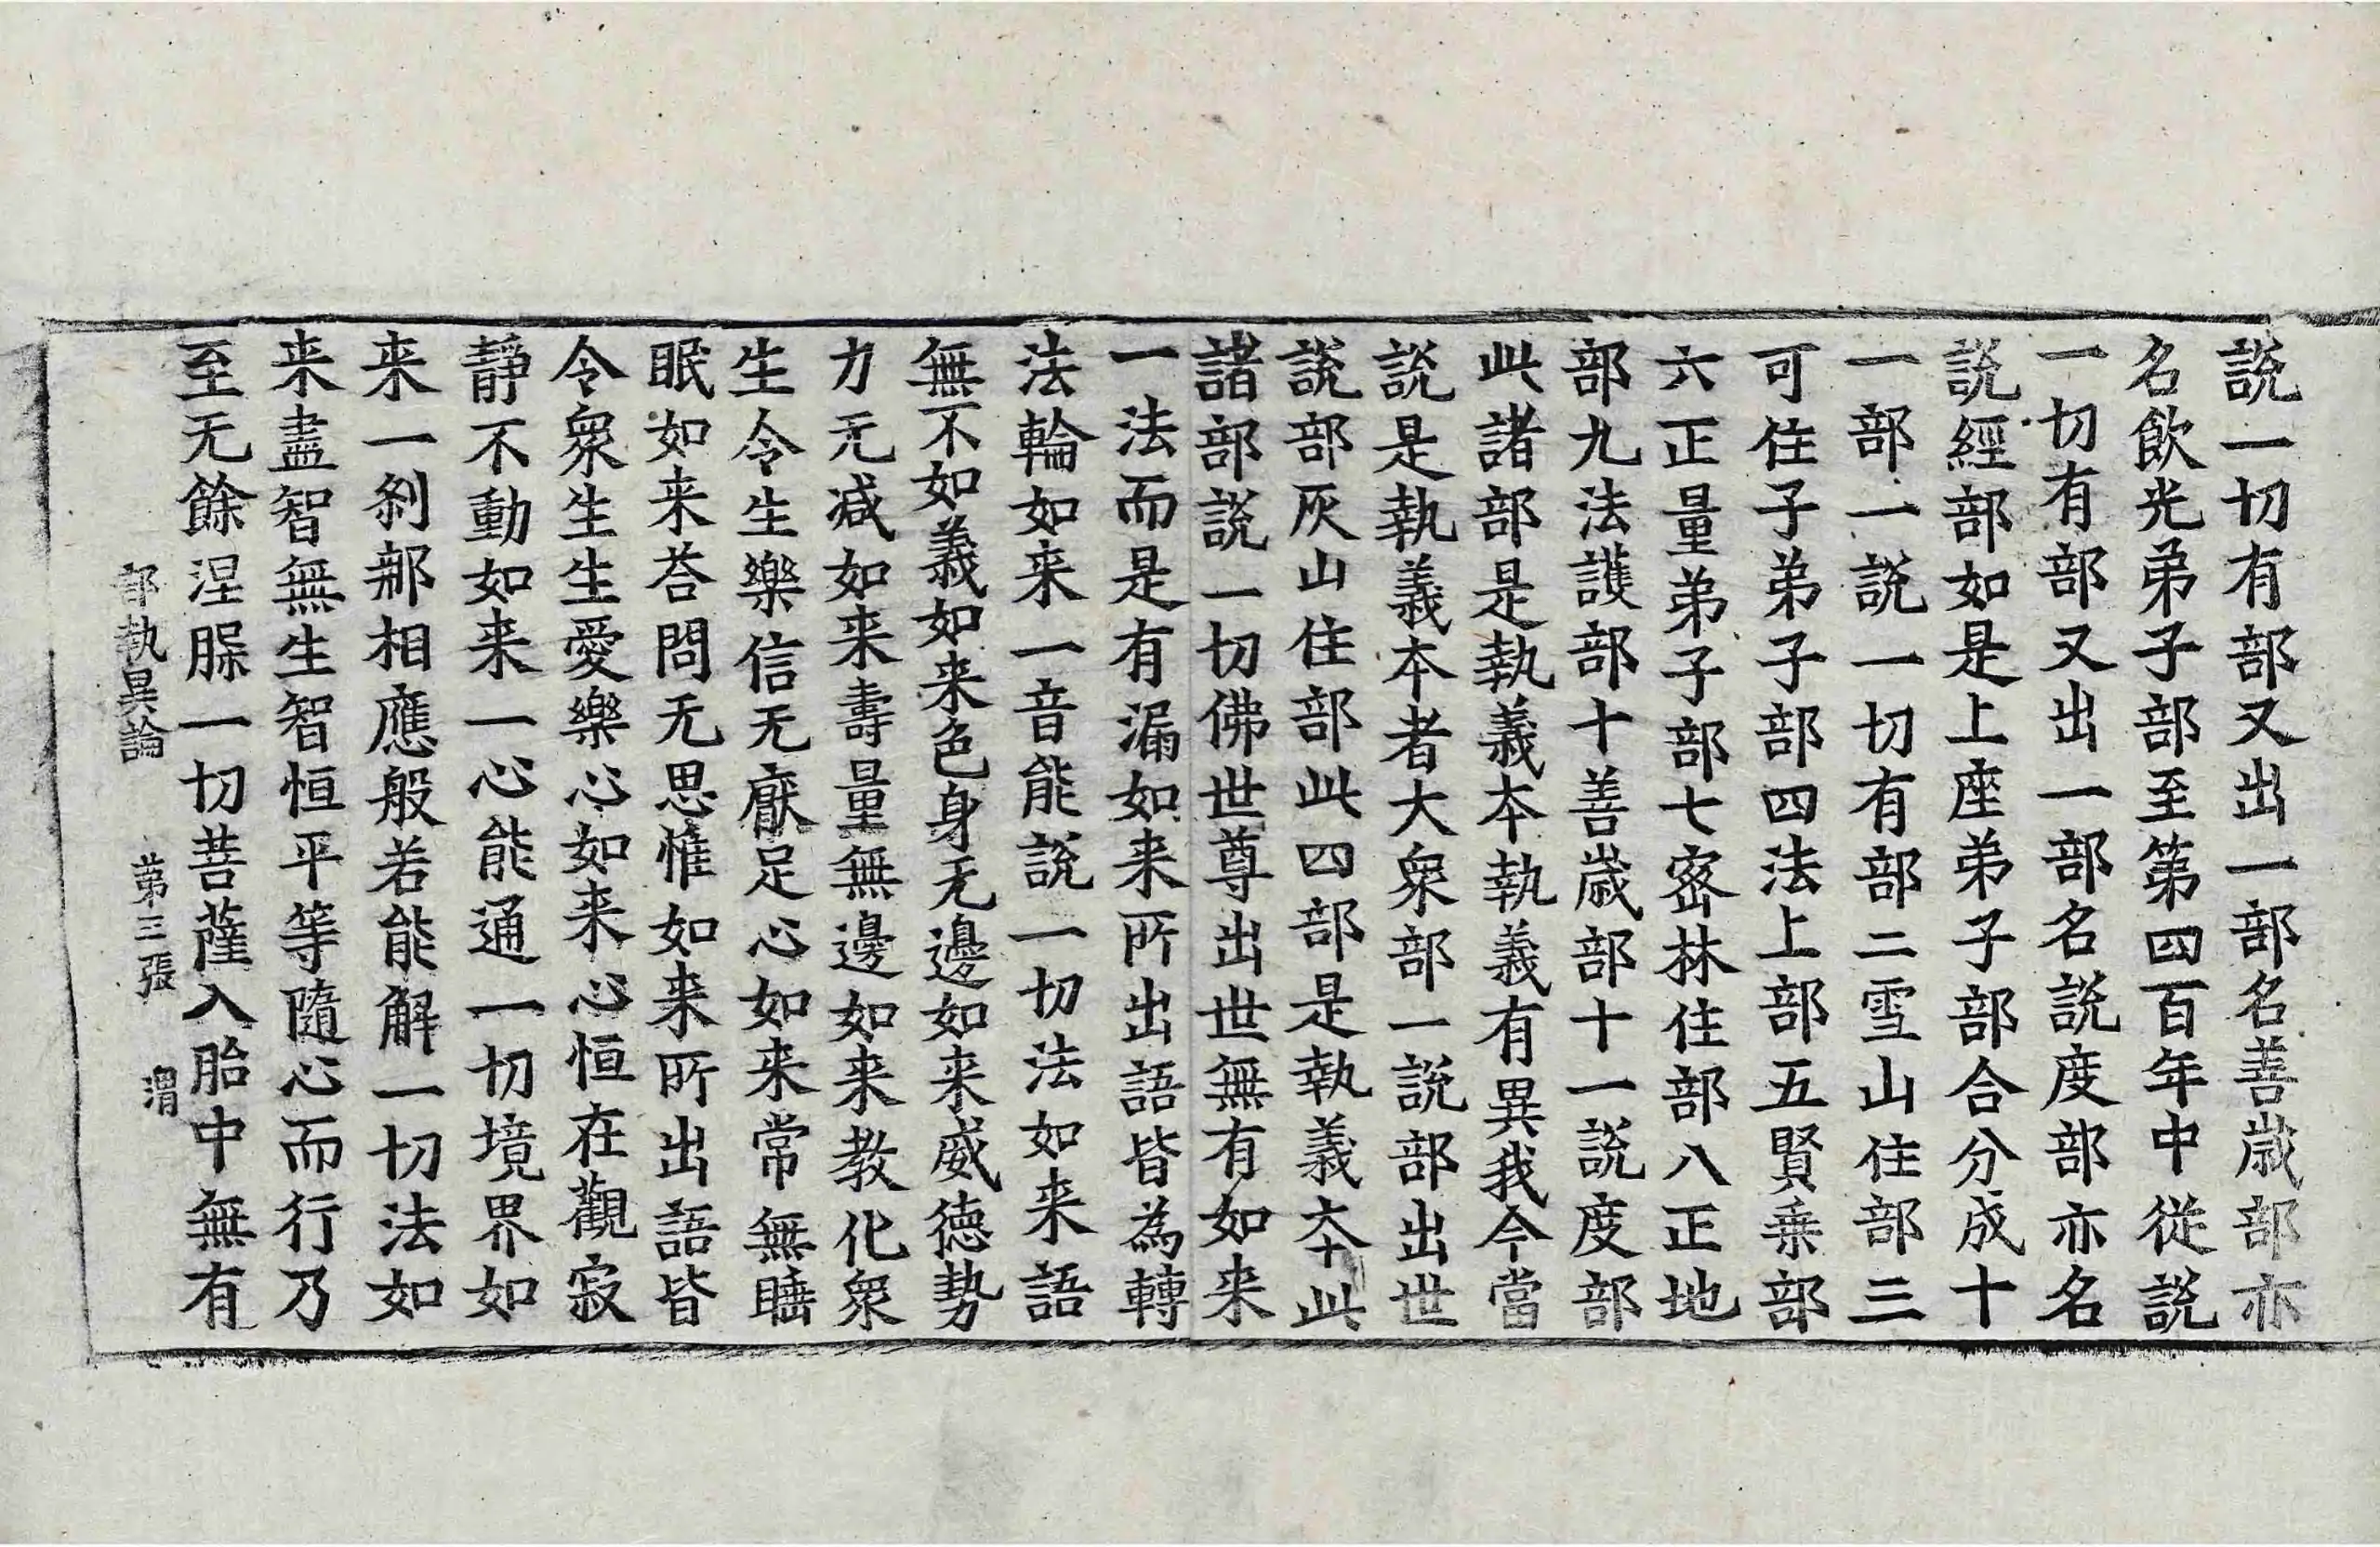 說一切有部又出一部名善歳部亦
名飲光弟子部至第四百年中從說
一切有部又出一部名說度部亦名
說經部如是上座弟子部合分成十
一部一說一切有部二雪山住部三
可住子弟子部四法上部五賢乗部
六正量弟子部七密林住部八正地
部九法護部十善歳部十一說度部
此諸部是執義本執義有異我今當
說是執義本者大衆部一說部出世
說部灰山住部此四部是執義本此
諸部說一切佛世尊出世無有如来
一法而是有漏如来所出語皆為轉
法輪如来一音能說一切法如来語
無不如義如来色身无邊如来威德勢
力无减如来壽量無邊如来教化衆
生令生樂信无厭足心如来常無睡
眠如来荅問无思惟如来所出語皆
令衆生生愛樂心如来心恒在觀寂
靜不動如来一心能通一切境界如
来一剎那相應般若能解一切法如
来盡智無生智恒平等隨心而行乃
至无餘涅脲一切菩薩入胎中無有
部執異論　第三張　渭